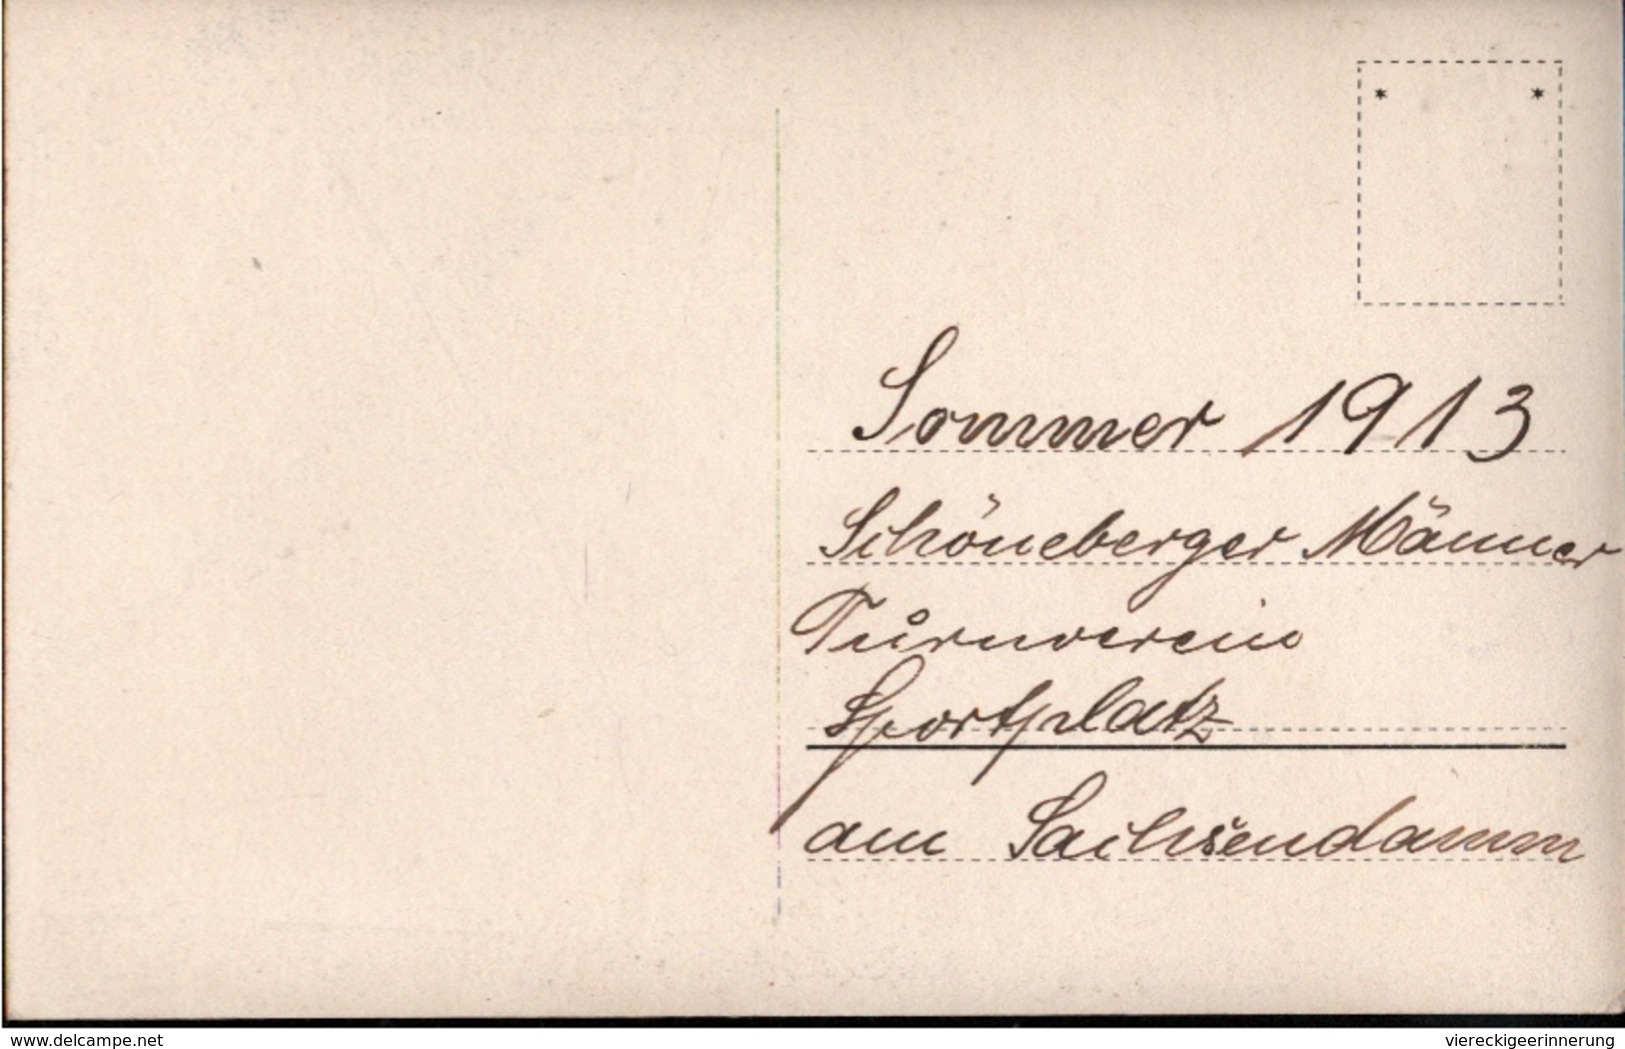 Sommer 1913
Schöneberger Männer
Turnverein
Sportplatz
am Sachsendamm
www.delcampe.net
viereckigeerinnerung